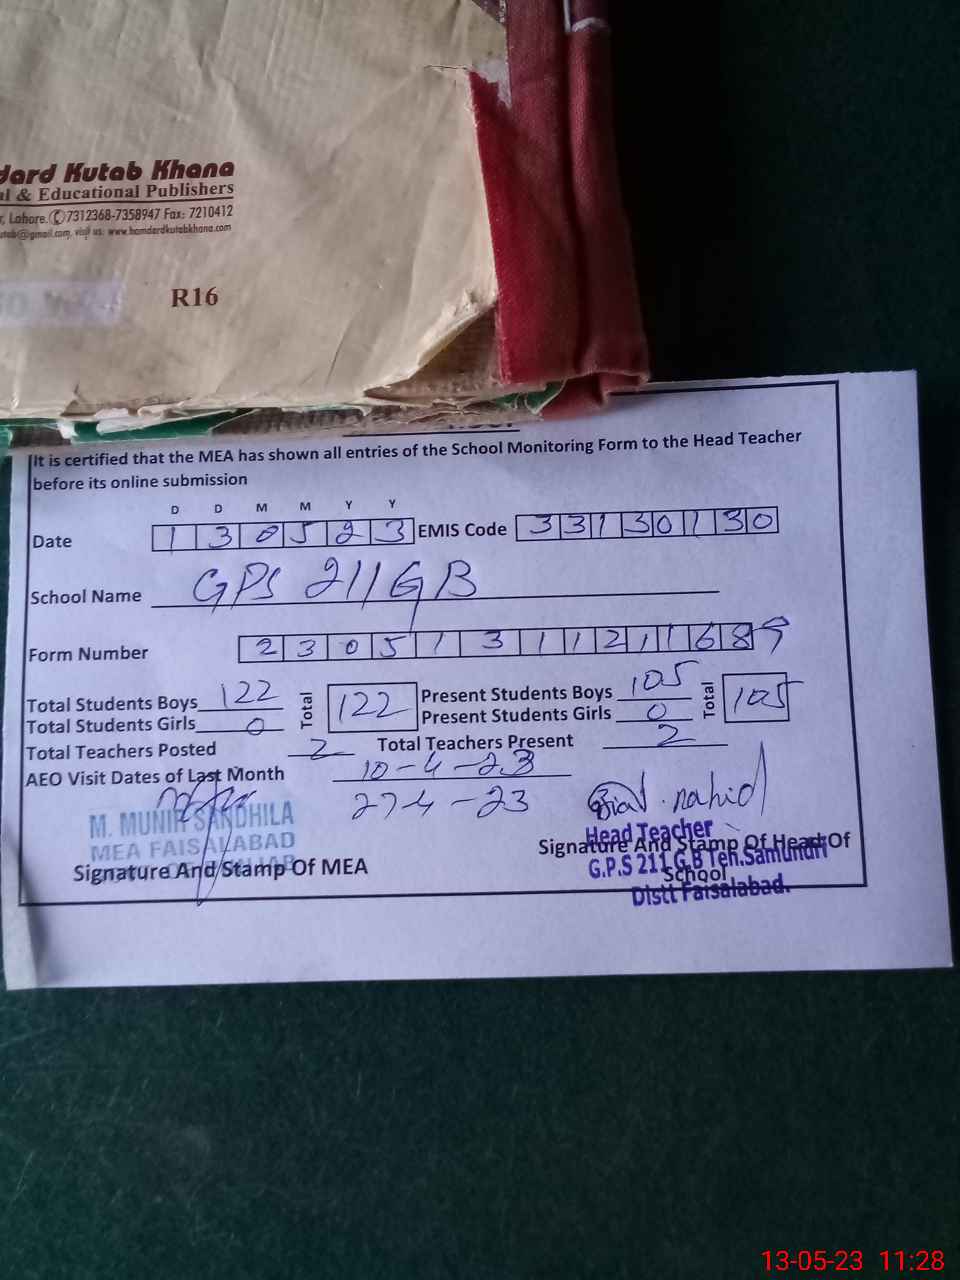 dard Kutab Khana
al & Educational Publishers
r, Lahore. ✆7312368-7358947 Fax: 7210412
utab@gmail.com, visit us: www.hamdardkutabkhana.com
R16
It is certified that the MEA has shown all entries of the School Monitoring Form to the Head Teacher
before its online submission
D D M M Y Y
Date 1 3 0 5 2 3 EMIS Code 3 3 1 3 0 1 3 0
School Name GPS 211 GB
Form Number 2 3 0 5 1 3 1 1 2 1 1 6 8 9
Total Students Boys 122 Total 122 Present Students Boys 105 Total 105
Total Students Girls 0 Present Students Girls 0
Total Teachers Posted 2 Total Teachers Present 2
AEO Visit Dates of Last Month 10-4-23
27-4-23
M. MUNIR SANDHILA
MEA FAISALABAD
Signature And Stamp Of MEA
nahid
Head Teacher
Signature And Stamp Of Head Of
G.P.S 211 G.B Teh.Samundri
School
Distt Faisalabad.
13-05-23 11:28